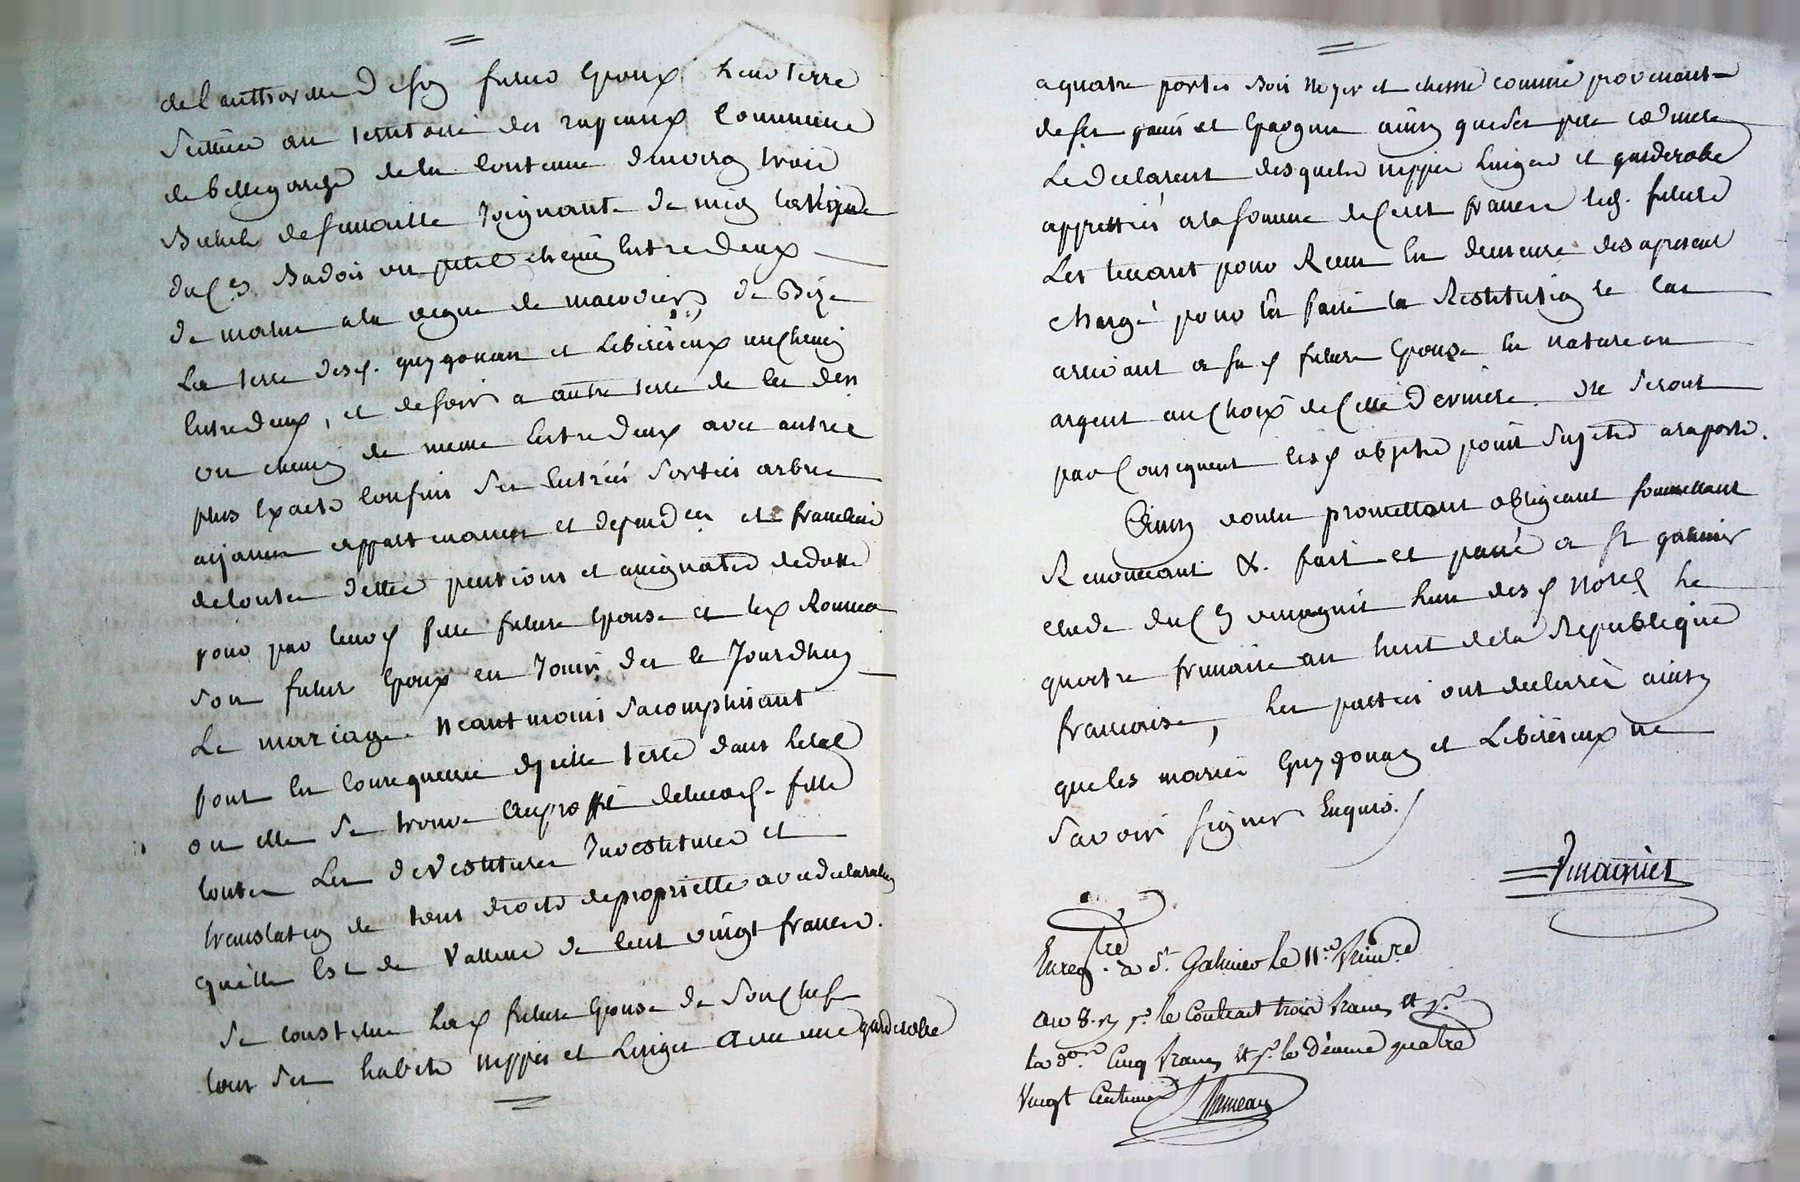 de l'authorite de son futur Epoux une terre
scittuée au territoire des rapeaux Commune
de bellegarde de la Contenue d'environ trois
Bichets de semaille Joignante de midi la vigne
du Cen Badois un petit chemin Entre deux
de matin a la vigne de de Bize
La terre des guygonan et un Chemin
Entre deux, et de soir a autre terre de
un chemin de meme Entre deux avec autres
plus Exacts Confins ses Entrées sorties arbres
aijances appartenances et dépendces et franche
de toutes dettes pentions et de dotte
pour par lune fille future Epouse et lex
son futur Epoux en Jouir des le Jourdhuy
Le mariage Neantmoins sacomplissant
pour En Consequence d'icelle terre dans letat
ou elle se trouve Au proffit de lune fille
toutes Les devestitures Investitures et
translation de tous droits de proprietté avec declaration
qu'elle Est de Valleur de Cent vingt francs.
Se constitue Lad future Epouse de son Chef
tous ses habits nippes et Linges Avec une garderobe
a quatre portes Bois Noyer et chesne comme provenant
de ses gains et Epargnes ainsi que ses pere et mere
Le declarent desquels nippes Linges et garderobe
apprettiés a la somme de Cent francs led. futur
Epoux
chargé pour En faire la Restitution le cas
arrivant a sad future Epouse En nature ou
argent au Choix de Cette derniere. Ne seront
par Consequent lesd objets point Sujets a raport.
Ainsi voulu promettant obligeant soumettant
Renonceant &. fait et passé a St galmier
etude du Cen vimagnier L'un desd Notes le
quatre frimaire an huit de la Republique
francaise, Les parties ont declaré ainsi
que les mariés guygonan et ne
Savoir signer Enquis.
Vmagnier
Enregtré a St. Galmier le 11e. frimre
an 8. R. pr. le Contrat trois francs et pr.
la don. Cinq francs et pr. le Décime quatre
Vingt Centimes